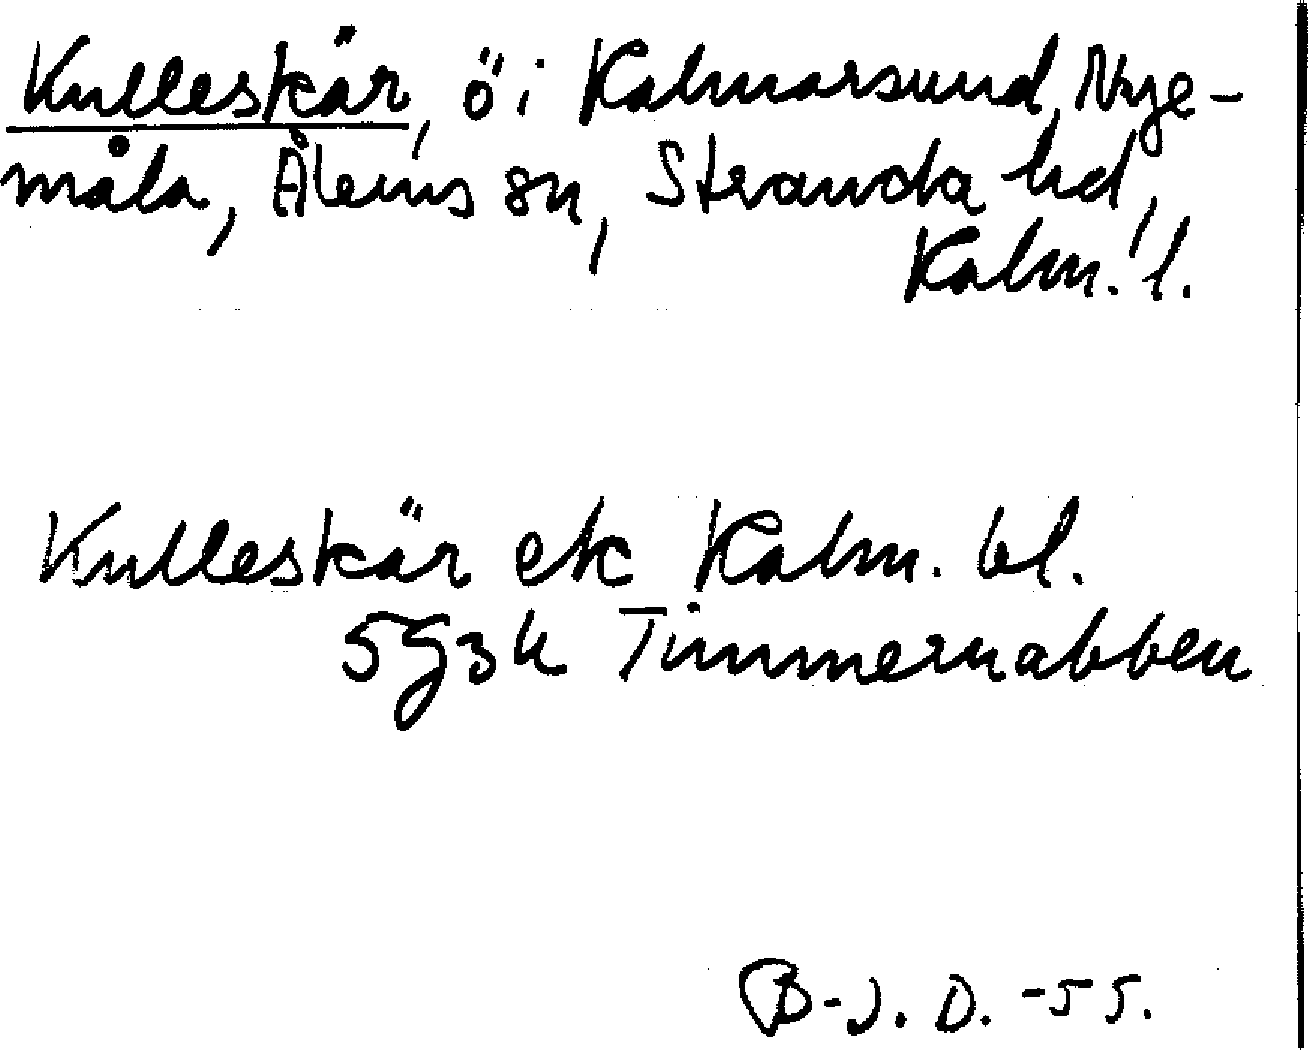 Kulleskär, ö i Kalmarsund, Nye-
måla, Ålems sn, Stranda hd,
Kalm. l.
Kulleskär ek Kalm. bl.
5g3h Timmernabben
B-J. D. -55.